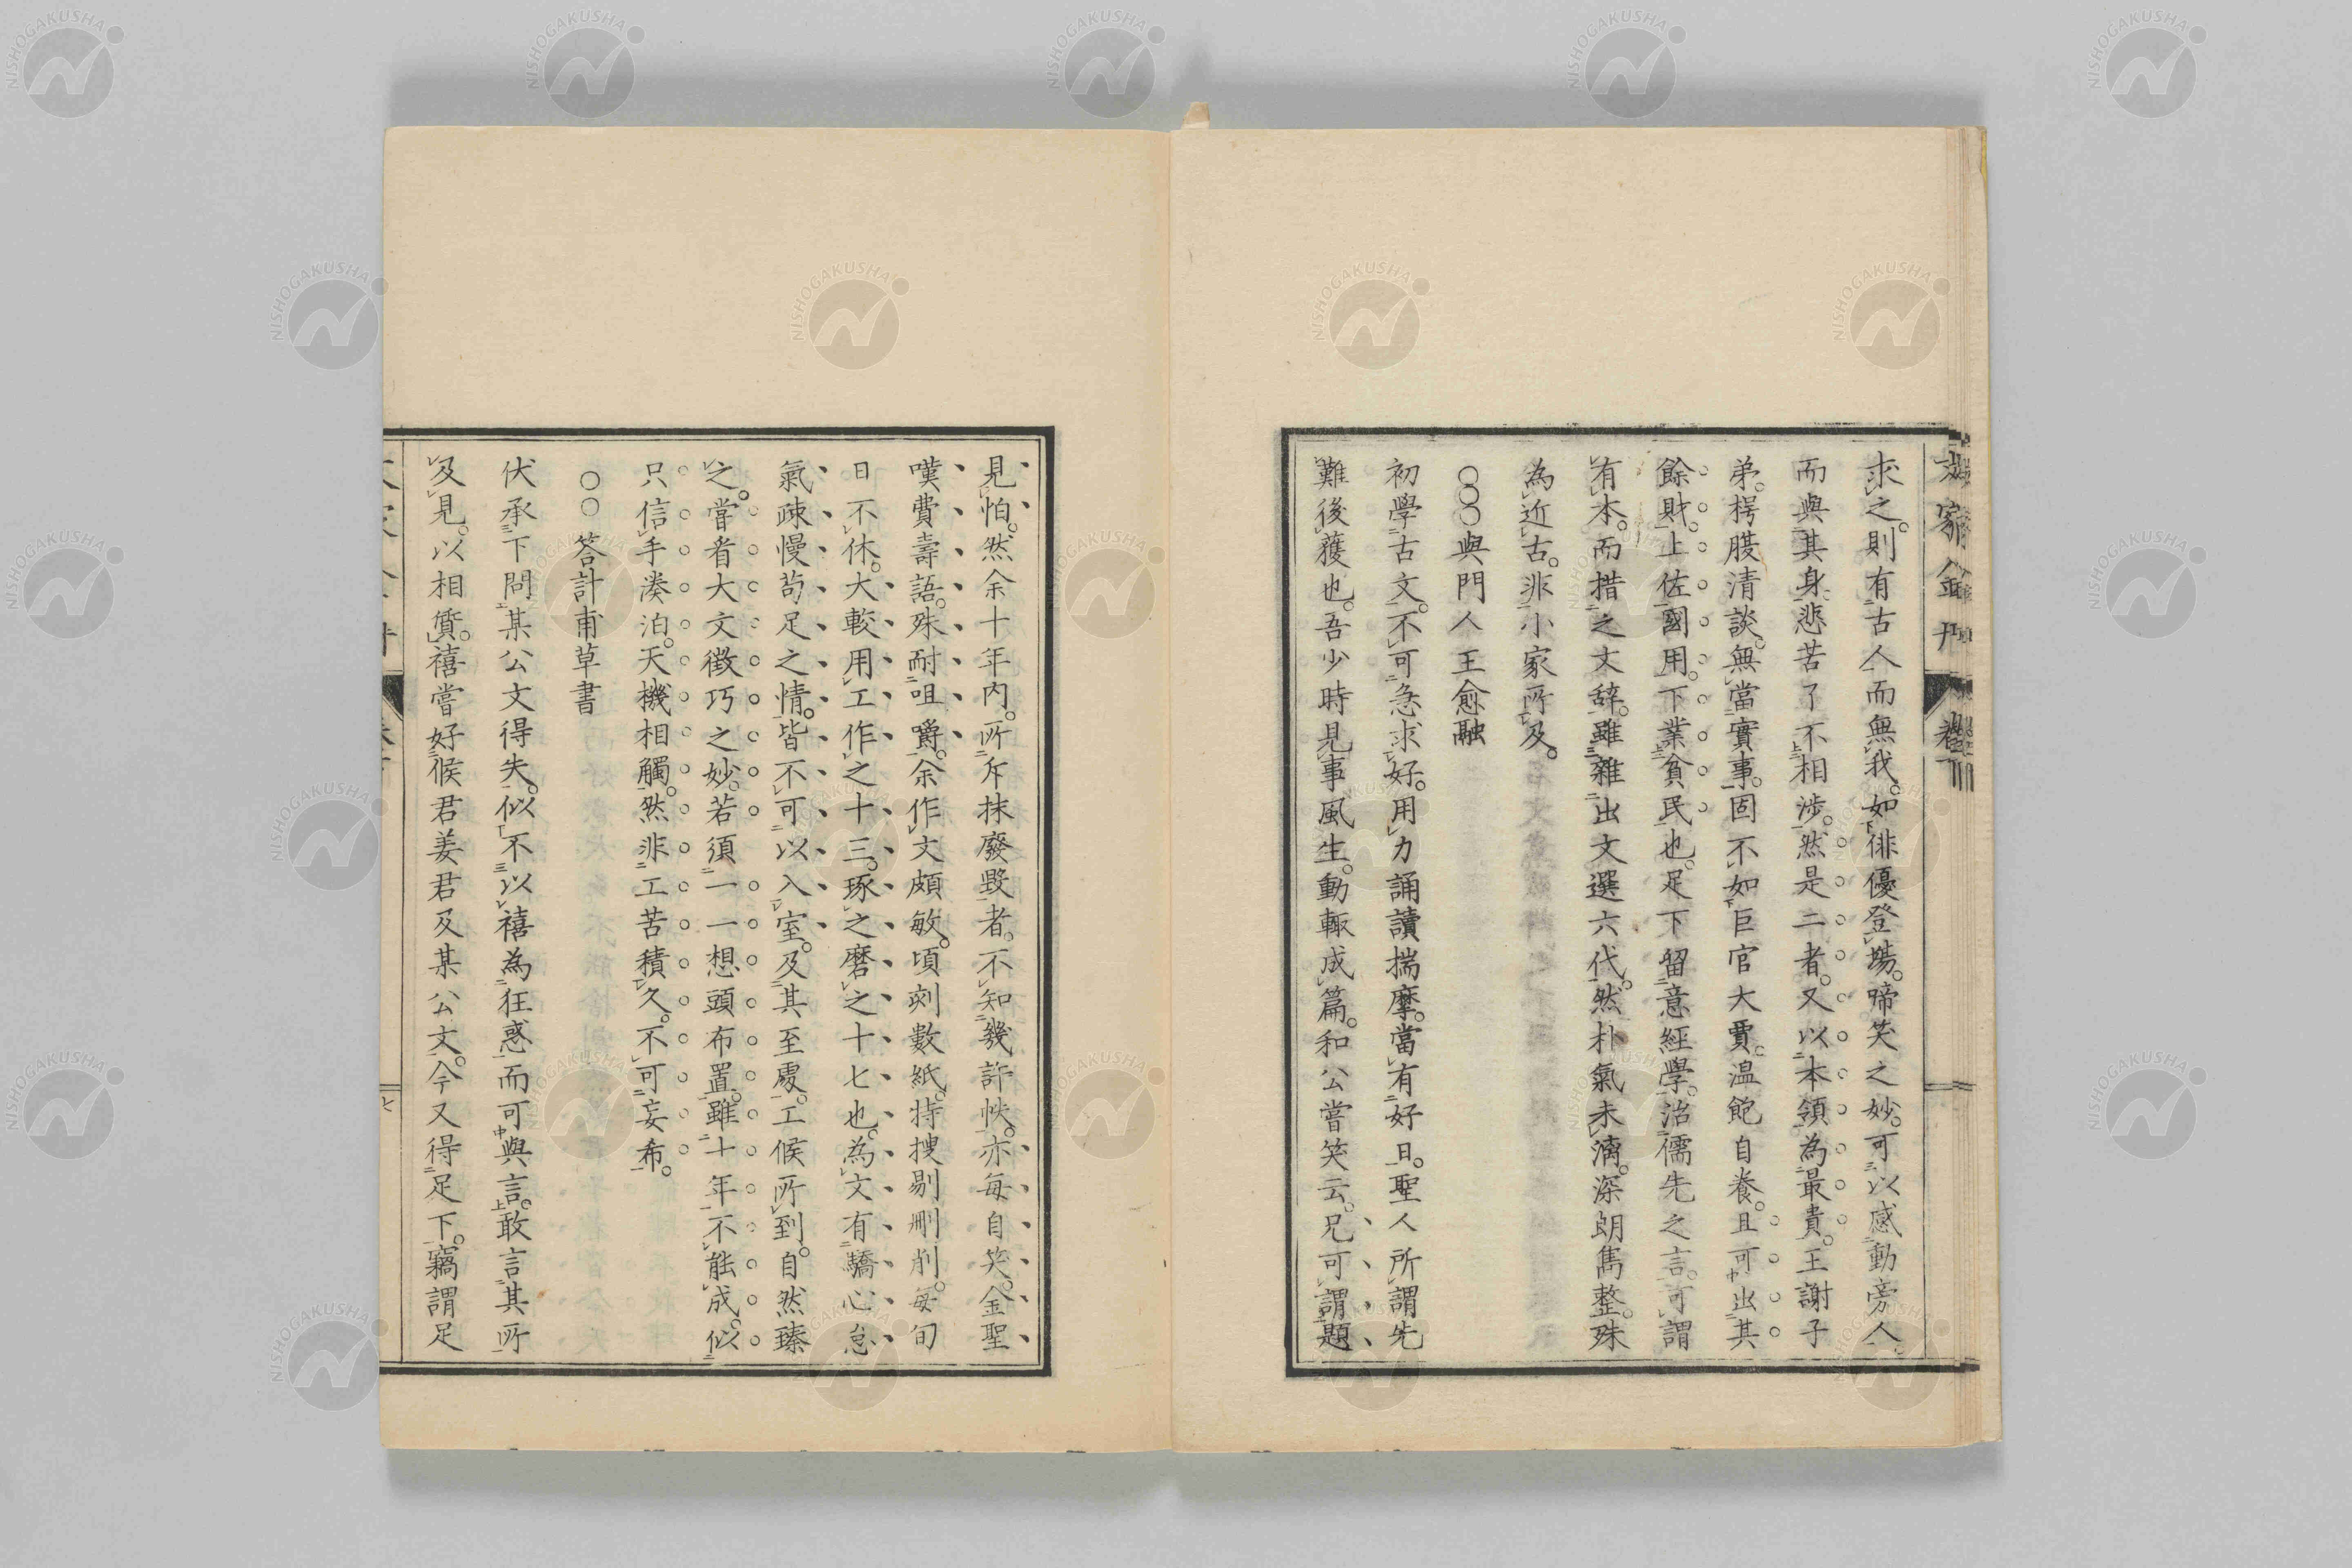 求之。則有古人而無我。如俳優登場。啼笑之妙。可以感動旁人。
而與其身悲苦了不相涉。然是二者。又以本領為最貴。王謝子
弟。楞腹清談。無當實事。固不如巨官大賈。温飽自養。且可出其
餘財。上佐國用。下業貧民也。足下留意經學。治儒先之言。可謂
有本。而措之文辞。雖雜出文選六代。然朴氣未漓。深朗雋整。殊
為近古。非小家所及。
○○○與門人王愈融
初學古文。不可急求好。用力誦讀揣摩。當有好日。聖人所謂先
難後蒦也。吾少時見事風生。動輙成篇。和公嘗笑云。兄可謂題
見怕。然余十年內。所斥抹廢毀者。不知幾許帙。亦每自笑。金聖
嘆費壽語。殊耐咀嚼。余作文頗敏。頃刻數紙。持搜剔刪削。每旬
日不休。大較用工作之十三。琢之磨之十七也。為文有驕心怠
氣疎慢苟足之情。皆不可以入室。及其至處。工候所到。自然臻
之。嘗看大文徴巧之妙。若須一一想頭布置。雖十年不能成。似
只信手湊泊。天機相觸。然非工苦積久。不可妄希。
○○答計甫草書
伏承下問某公文得失。似不以禧為狂惑而可與言。敢言其所
及見。以相質。禧嘗好侯君姜君及某公文。今又得足下。竊謂足
文家金丹
卷
七
NISHOGAKUSHA